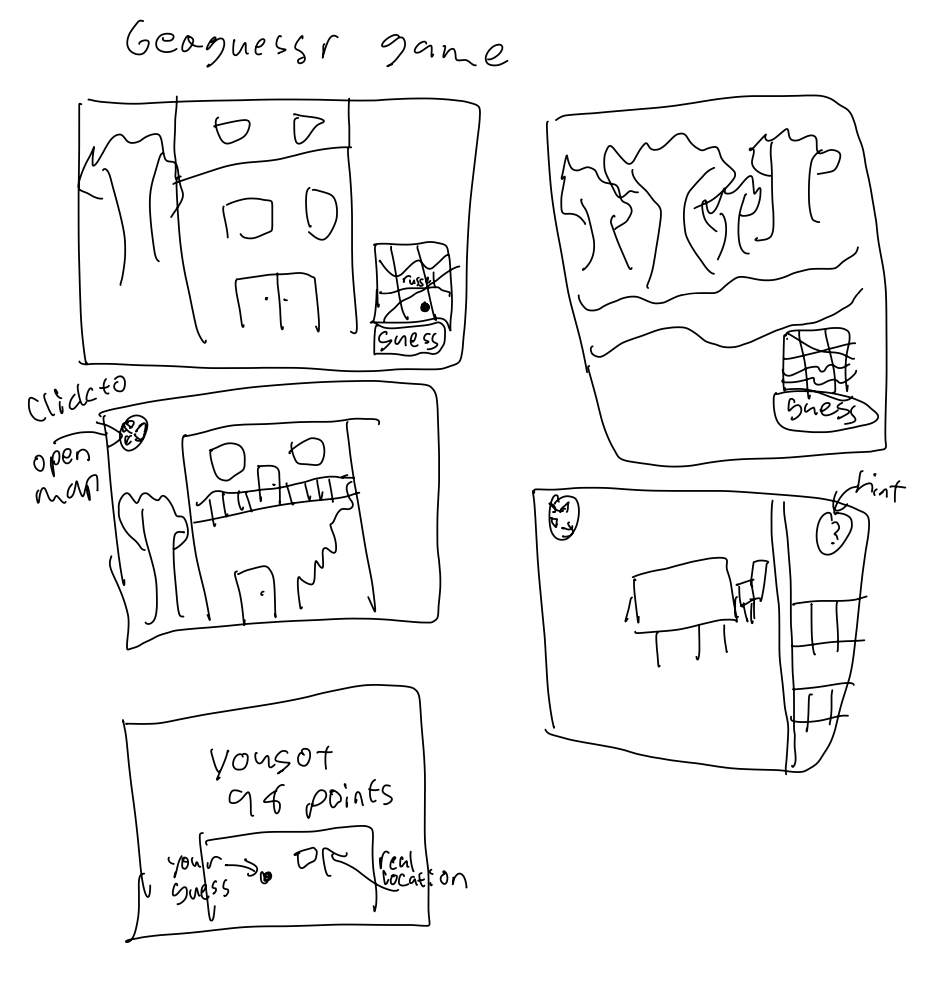 Geoguessr game
Guess
Guess
Click to
open
map
hint
?
You got
98 points
your
guess
real
location